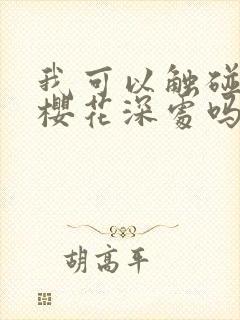 我可以触碰
樱花深处吗
胡高平